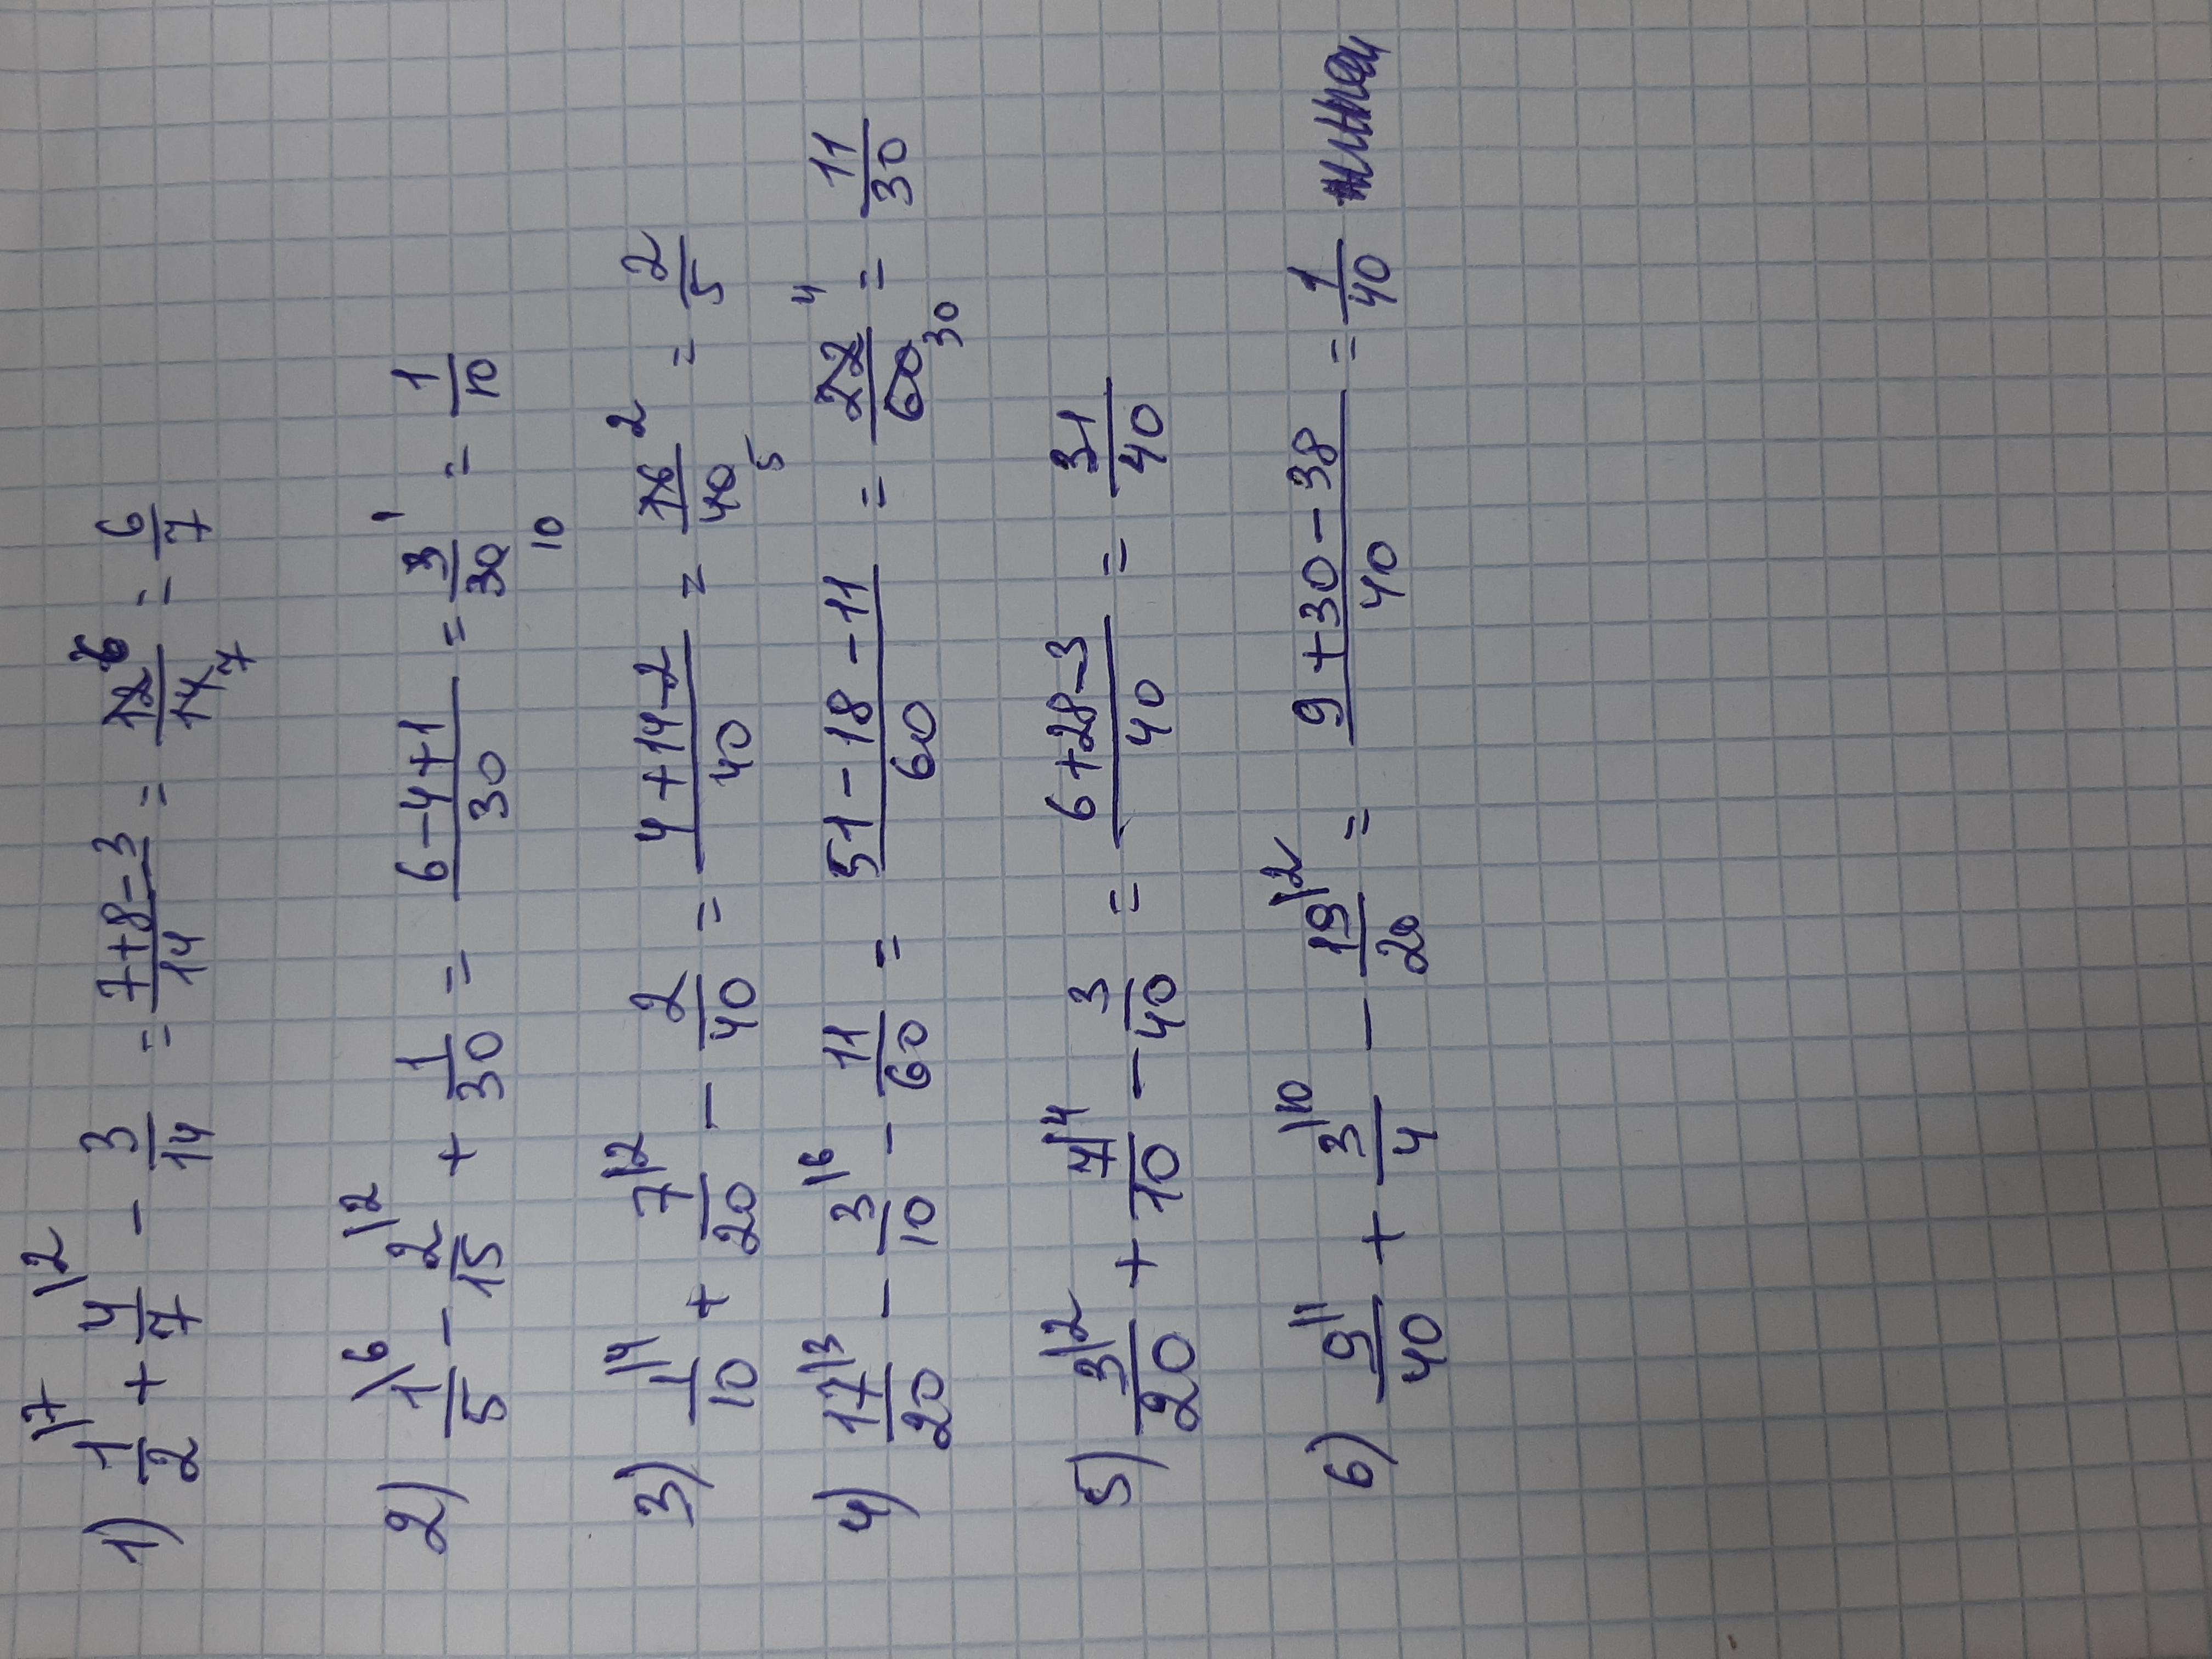 1) 1/2 \7 + 4/7 \2 - 3/14 = (7+8-3)/14 = 12/14 6 7 = 6/7
2) 1/5 \6 - 2/15 \2 + 1/30 = (6-4+1)/30 = 3/30 1 10 = 1/10
3) 1/10 \4 + 7/20 \2 - 2/40 = (4+14-2)/40 = 16/40 2 5 = 2/5
4) 17/20 \3 - 3/10 \6 - 11/60 = (51-18-11)/60 = 22/60 4 30 = 11/30
5) 3/20 \2 + 7/10 \4 - 3/40 = (6+28-3)/40 = 31/40
6) 9/40 \1 + 3/4 \10 - 19/20 \2 = (9+30-38)/40 = 1/40